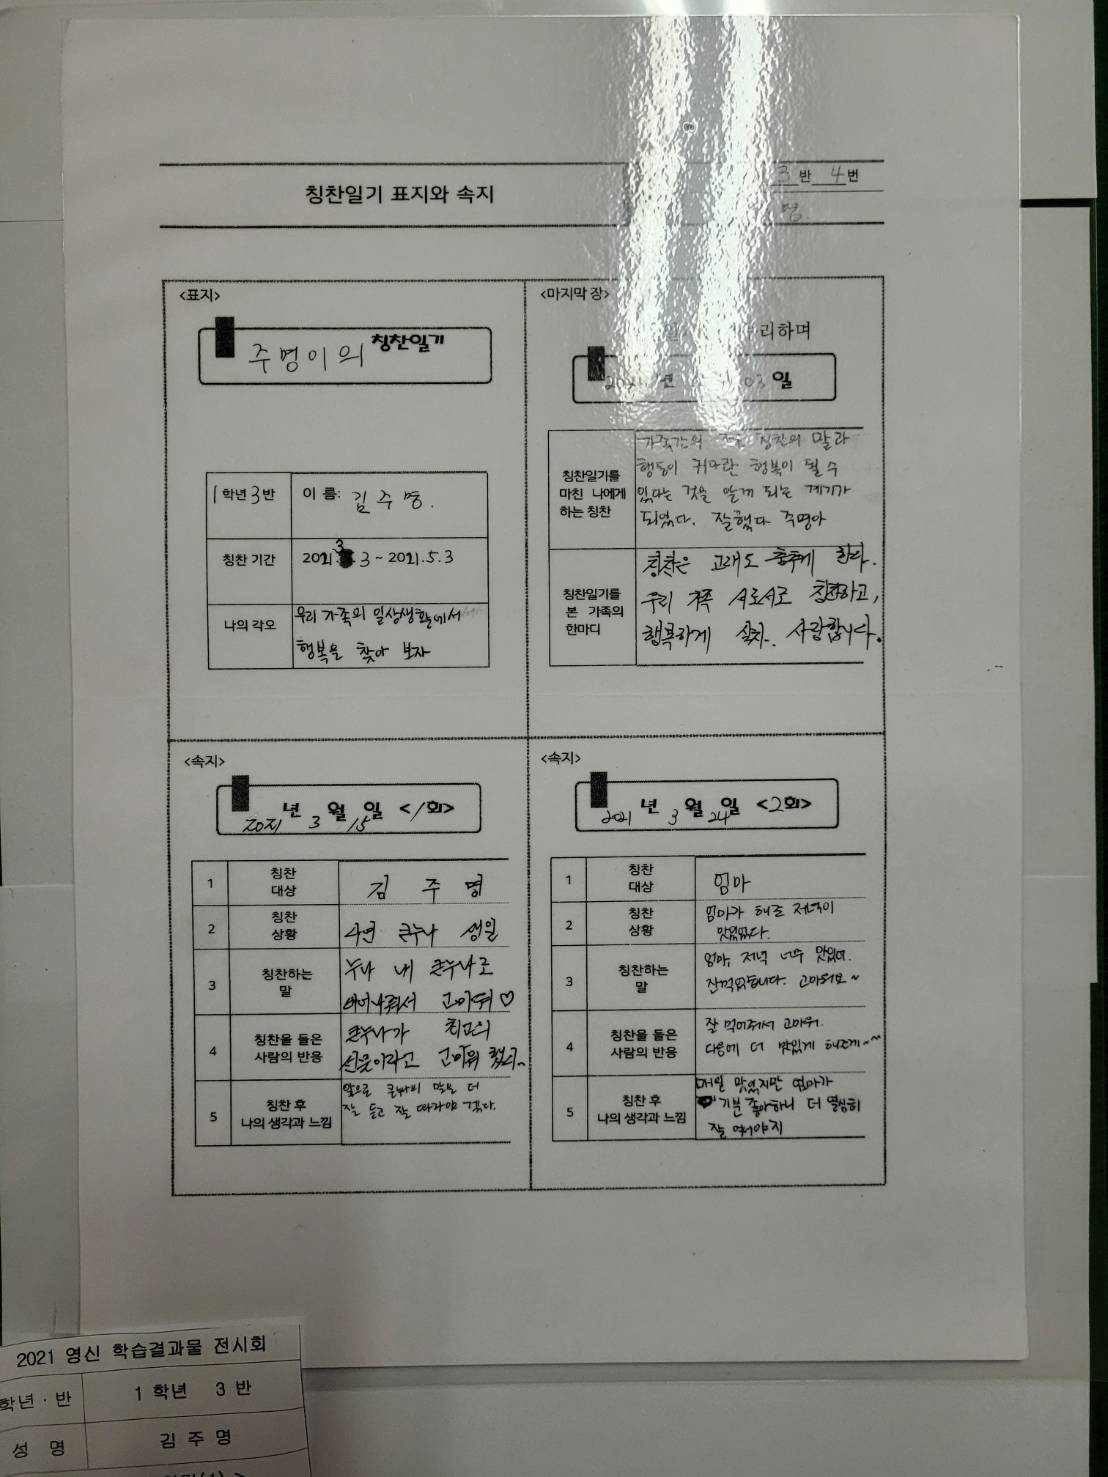 칭찬일기 표지와 속지
3반 4번
명
<표지>
주명이의 칭찬일기
1학년 3반 이 름: 김주명.
칭찬 기간 2021.3 3~2021.5.3
나의 각오
우리 가족의 일상생활에서
행복을 찾아 보자
<마지막 장>
리하며
03일
칭찬일기를
마친 나에게
하는 칭찬
가족간의 칭찬의 말과
행동이 커다란 행복이 될 수
있다는 것을 알게 되는 계기가
되었다. 잘했다 주명아
칭찬일기를
본 가족의
한마디
칭찬은 고래도 춤추게 한다.
우리 가족 서로서로 칭찬하고,
행복하게 살자. 사랑합니다.
<속지>
2021년 3월 15일 <1회>
1 칭찬 대상 김 주 명
2 칭찬 상황 큰누나 생일
3 칭찬하는 말
누나 내 큰누나로
태어나줘서 고마워♡
4 칭찬을 들은 사람의 반응
큰누나가 최고의
선물이라고 고마워 했다.
5 칭찬 후 나의 생각과 느낌
앞으로 큰누나 말을 더
잘 듣고 잘 따라야 겠다.
<속지>
2021년 3월 24일 <2회>
1 칭찬 대상 엄마
2 칭찬 상황
엄마가 해준 저녁이
맛있었다.
3 칭찬하는 말
엄마, 저녁 너무 맛있어.
잘먹었습니다. 고마워요~
4 칭찬을 들은 사람의 반응
잘 먹어줘서 고마워.
다음에 더 맛있게 해줄게~~
5 칭찬 후 나의 생각과 느낌
매일 맛있지만 엄마가
기분 좋아하니 더 열심히
잘 먹어야지
2021 영신 학습결과물 전시회
학년·반 1 학년 3 반
성 명 김 주 명